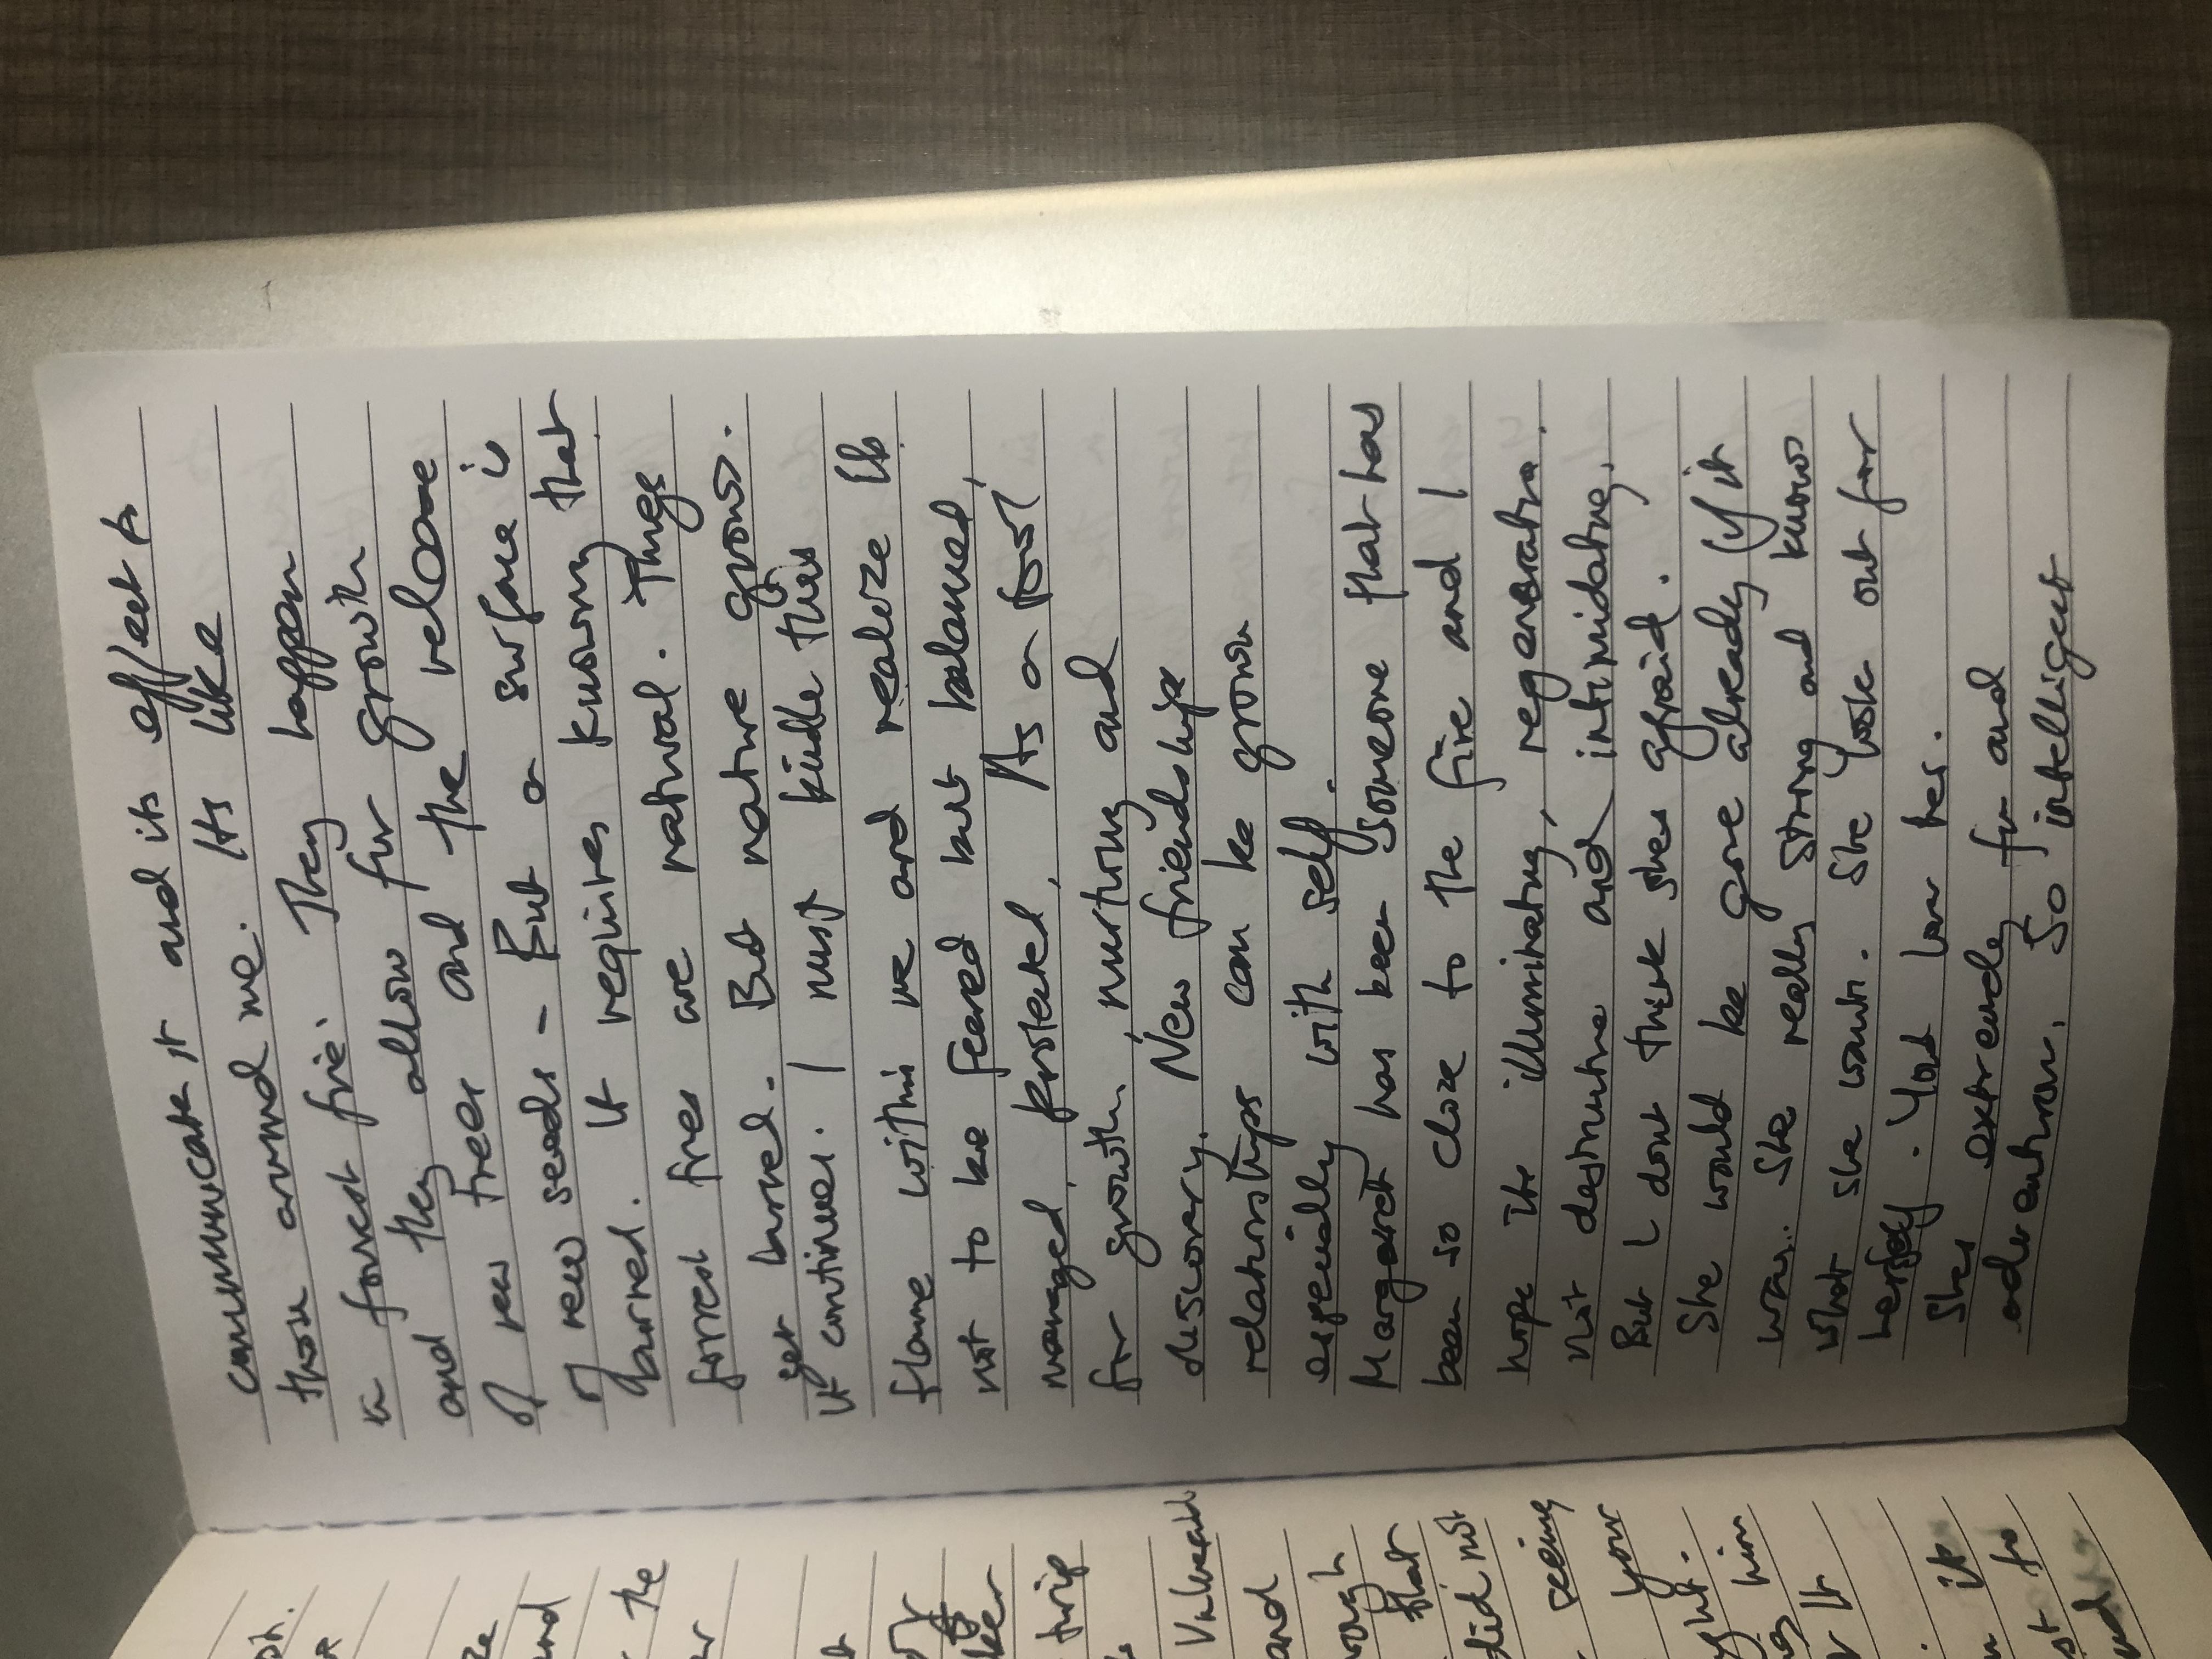 communicate it and its effect to
those around me. Its like
a forest fire. They happen
and they allow for growth
of new trees and the release
of new seeds - But a surface is
burned. It requires knowing that
forrest fires are natural. Things
get burned. But nature grows.
It continues. I must kindle this
flame within me and realize its
not to be feared but balanced,
managed, protected. As a tool
for growth, nurturing and
discovery. New friendships
relationships can be grown
especially with self.
Margaret has been someone that has
been so close to the fire and I
hope its illuminating, regenerative,
not destructive and intimidating,
But I dont think shes afraid.
She would be gone already if it
was. She really strong and knows
what she wants. She looks out for
herself. You love her.
Shes extremely fun and
adventurous. So intelligent
and
the
trip
Vulnerable
and
that
did not
seeing
your
him
it
to